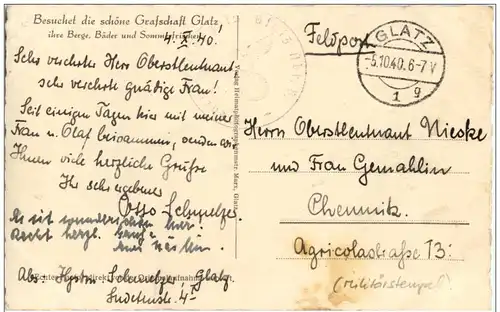 Besuchet die schöne Grafschaft Glatz,
ihre Berge, Bäder und Sommerfrischen!
4. X. 40.
Sehr verehrter Herr Oberstleutnant
sehr verehrte gnädige Frau!
Seit einigen Tagen hier mit meiner
Frau u. Olaf beisammen, senden wir
Ihnen viele herzliche Grüße
Ihr sehr ergebener
Otto Schmelzer
Es ist wunderschön hier.
Recht herzl.
Abs: Hptm. Schmelzer, Glatz
Sudetenstr. 4
Feldpost
GLATZ
-5.10.40.6-7V
1 g
Herrn Oberstleutnant Nieske
und Frau Gemahlin
Chemnitz.
Agricolastraße 13.
(Militärstempel)